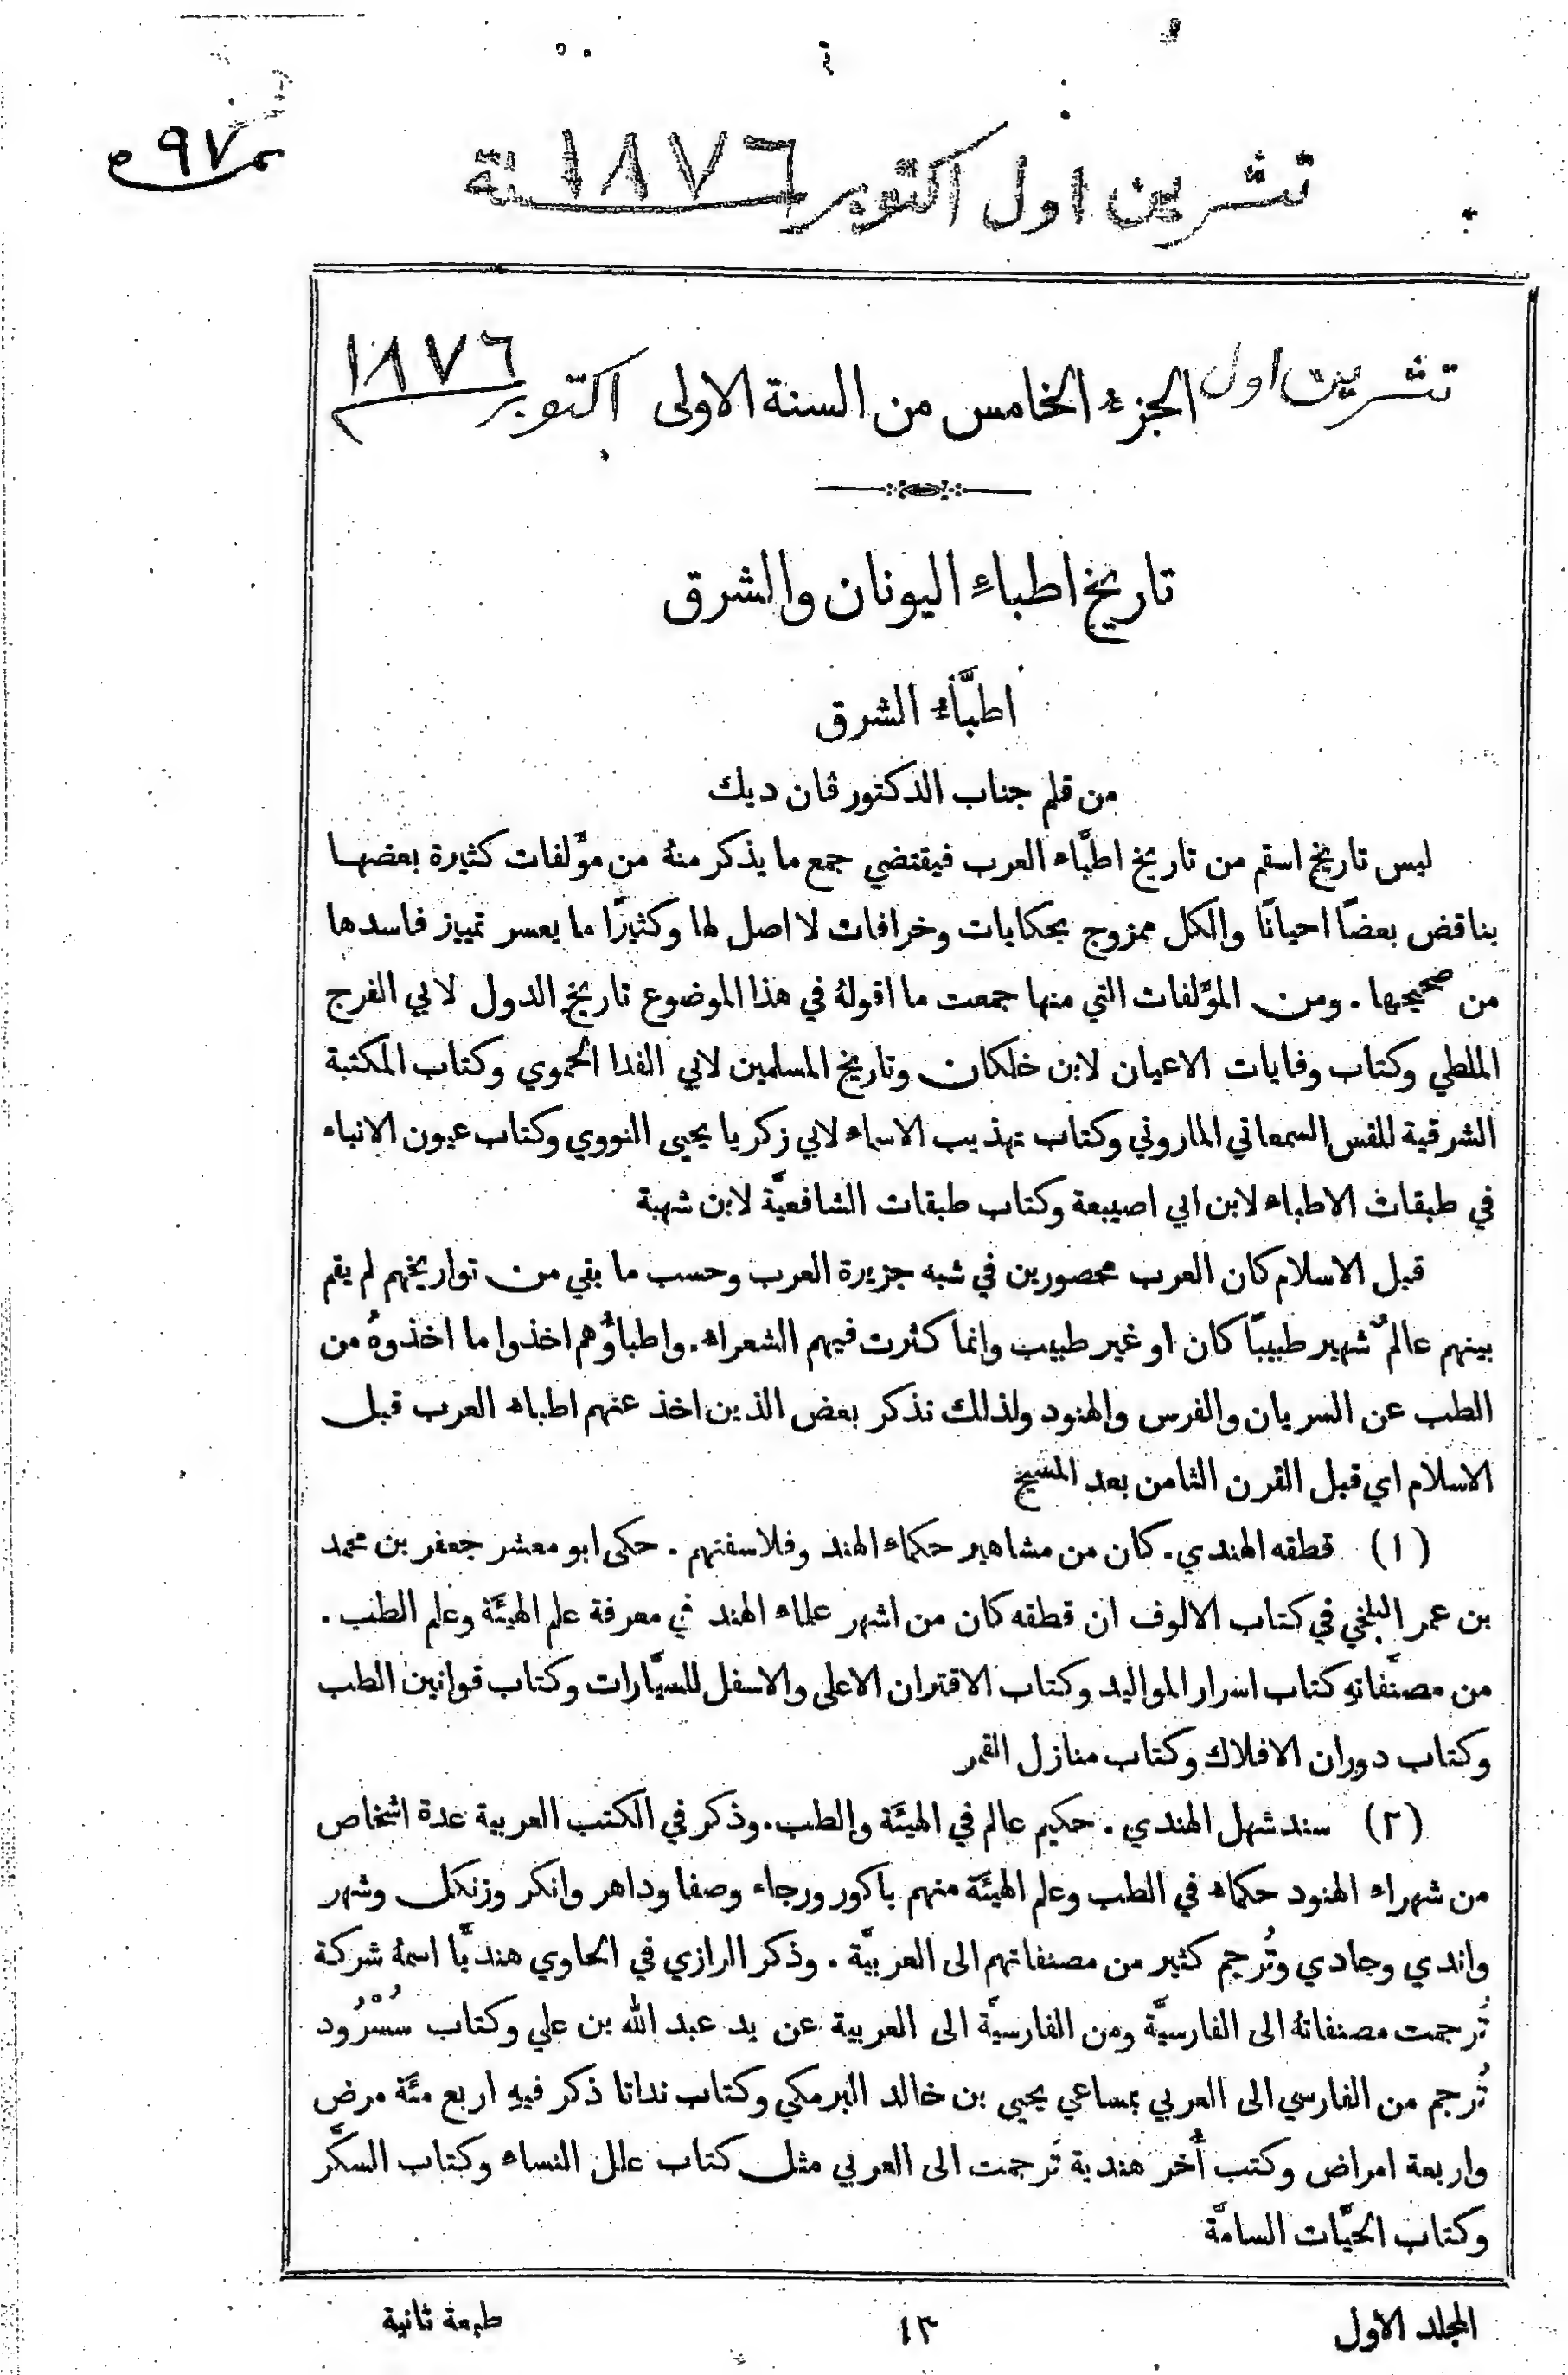 تشرين اول اكتوبر سنة ١٨٧٦
٩٧
تشرين اول الجزء الخامس من السنة الاولى اكتوبر ١٨٧٦
تاريخ اطباءِ اليونان والشرق
اطبَّاءُ الشرق
من قلم جناب الدكتور ڤان ديك
ليس تاريخ اسقم من تاريخ اطبَّاء العرب فيقتضي جمع ما يذكر منهُ من مؤَلفات كثيرة بعضها
يناقض بعضًا احيانًا والكل ممزوج بحكايات وخرافات لا اصل لها وكثيرًا ما يعسر تمييز فاسدها
من صحيحها . ومن المؤَلفات التي منها جمعت ما اقولهُ في هذا الموضوع تاريخ الدول لابي الفرج
الملطي وكتاب وفايات الاعيان لابن خلكان وتاريخ المسلمين لابي الفدا الحموي وكتاب المكتبة
الشرقية للقس السمعاني الماروني وكتاب تهذيب الاسماء لابي زكريا يحيى النووي وكتاب عيون الانباء
في طبقات الاطباء لابن ابي اصيبعة وكتاب طبقات الشافعيَّة لابن شهبة
قبل الاسلام كان العرب محصورين في شبه جزيرة العرب وحسب ما بقي من تواريخهم لم يقم
بينهم عالمٌ شهير طبيبًا كان او غير طبيب وانما كثرت فيهم الشعراء . واطباؤُهم اخذوا ما اخذوهُ من
الطب عن السريان والفرس والهنود ولذلك نذكر بعض الذين اخذ عنهم اطباء العرب قبل
الاسلام اي قبل القرن الثامن بعد المسيح
(١) قطقه الهندي . كان من مشاهير حكماء الهند وفلاسفتهم . حكى ابو معشر جعفر بن محمد
بن عمر البلخي في كتاب الالوف ان قطقه كان من اشهر علماء الهند في معرفة علم الهيئَة وعلم الطب .
من مصنَّفاتهِ كتاب اسرار المواليد وكتاب الاقتران الاعلى والاسفل للسيَّارات وكتاب قوانين الطب
وكتاب دوران الافلاك وكتاب منازل القمر
(٢) سندشهل الهندي . حكيم عالم في الهيئَة والطب . وذكر في الكتب العربية عدة اشخاص
من شهراء الهنود حكماء في الطب وعلم الهيئَة منهم باكور ورجاء وصفا وداهر وانكر وزنكل وشهر
واندي وجادي وتُرجم كثير من مصنفاتهم الى العربيَّة . وذكر الرازي في الحاوي هنديًّا اسمهُ شركة
تُرجمت مصنفاتهُ الى الفارسيَّة ومن الفارسيَّة الى العربية عن يد عبد الله بن علي وكتاب سُسْرُود
تُرجم من الفارسي الى العربي بمساعي يحيى بن خالد البرمكي وكتاب نداتا ذكر فيهِ اربع مئَة مرض
واربعة امراض وكتب أُخر هندية تُرجمت الى العربي مثل كتاب علل النساء وكتاب السكَّر
وكتاب الحيَّات السامَّة
المجلد الاول
١٣
طبعة ثانية